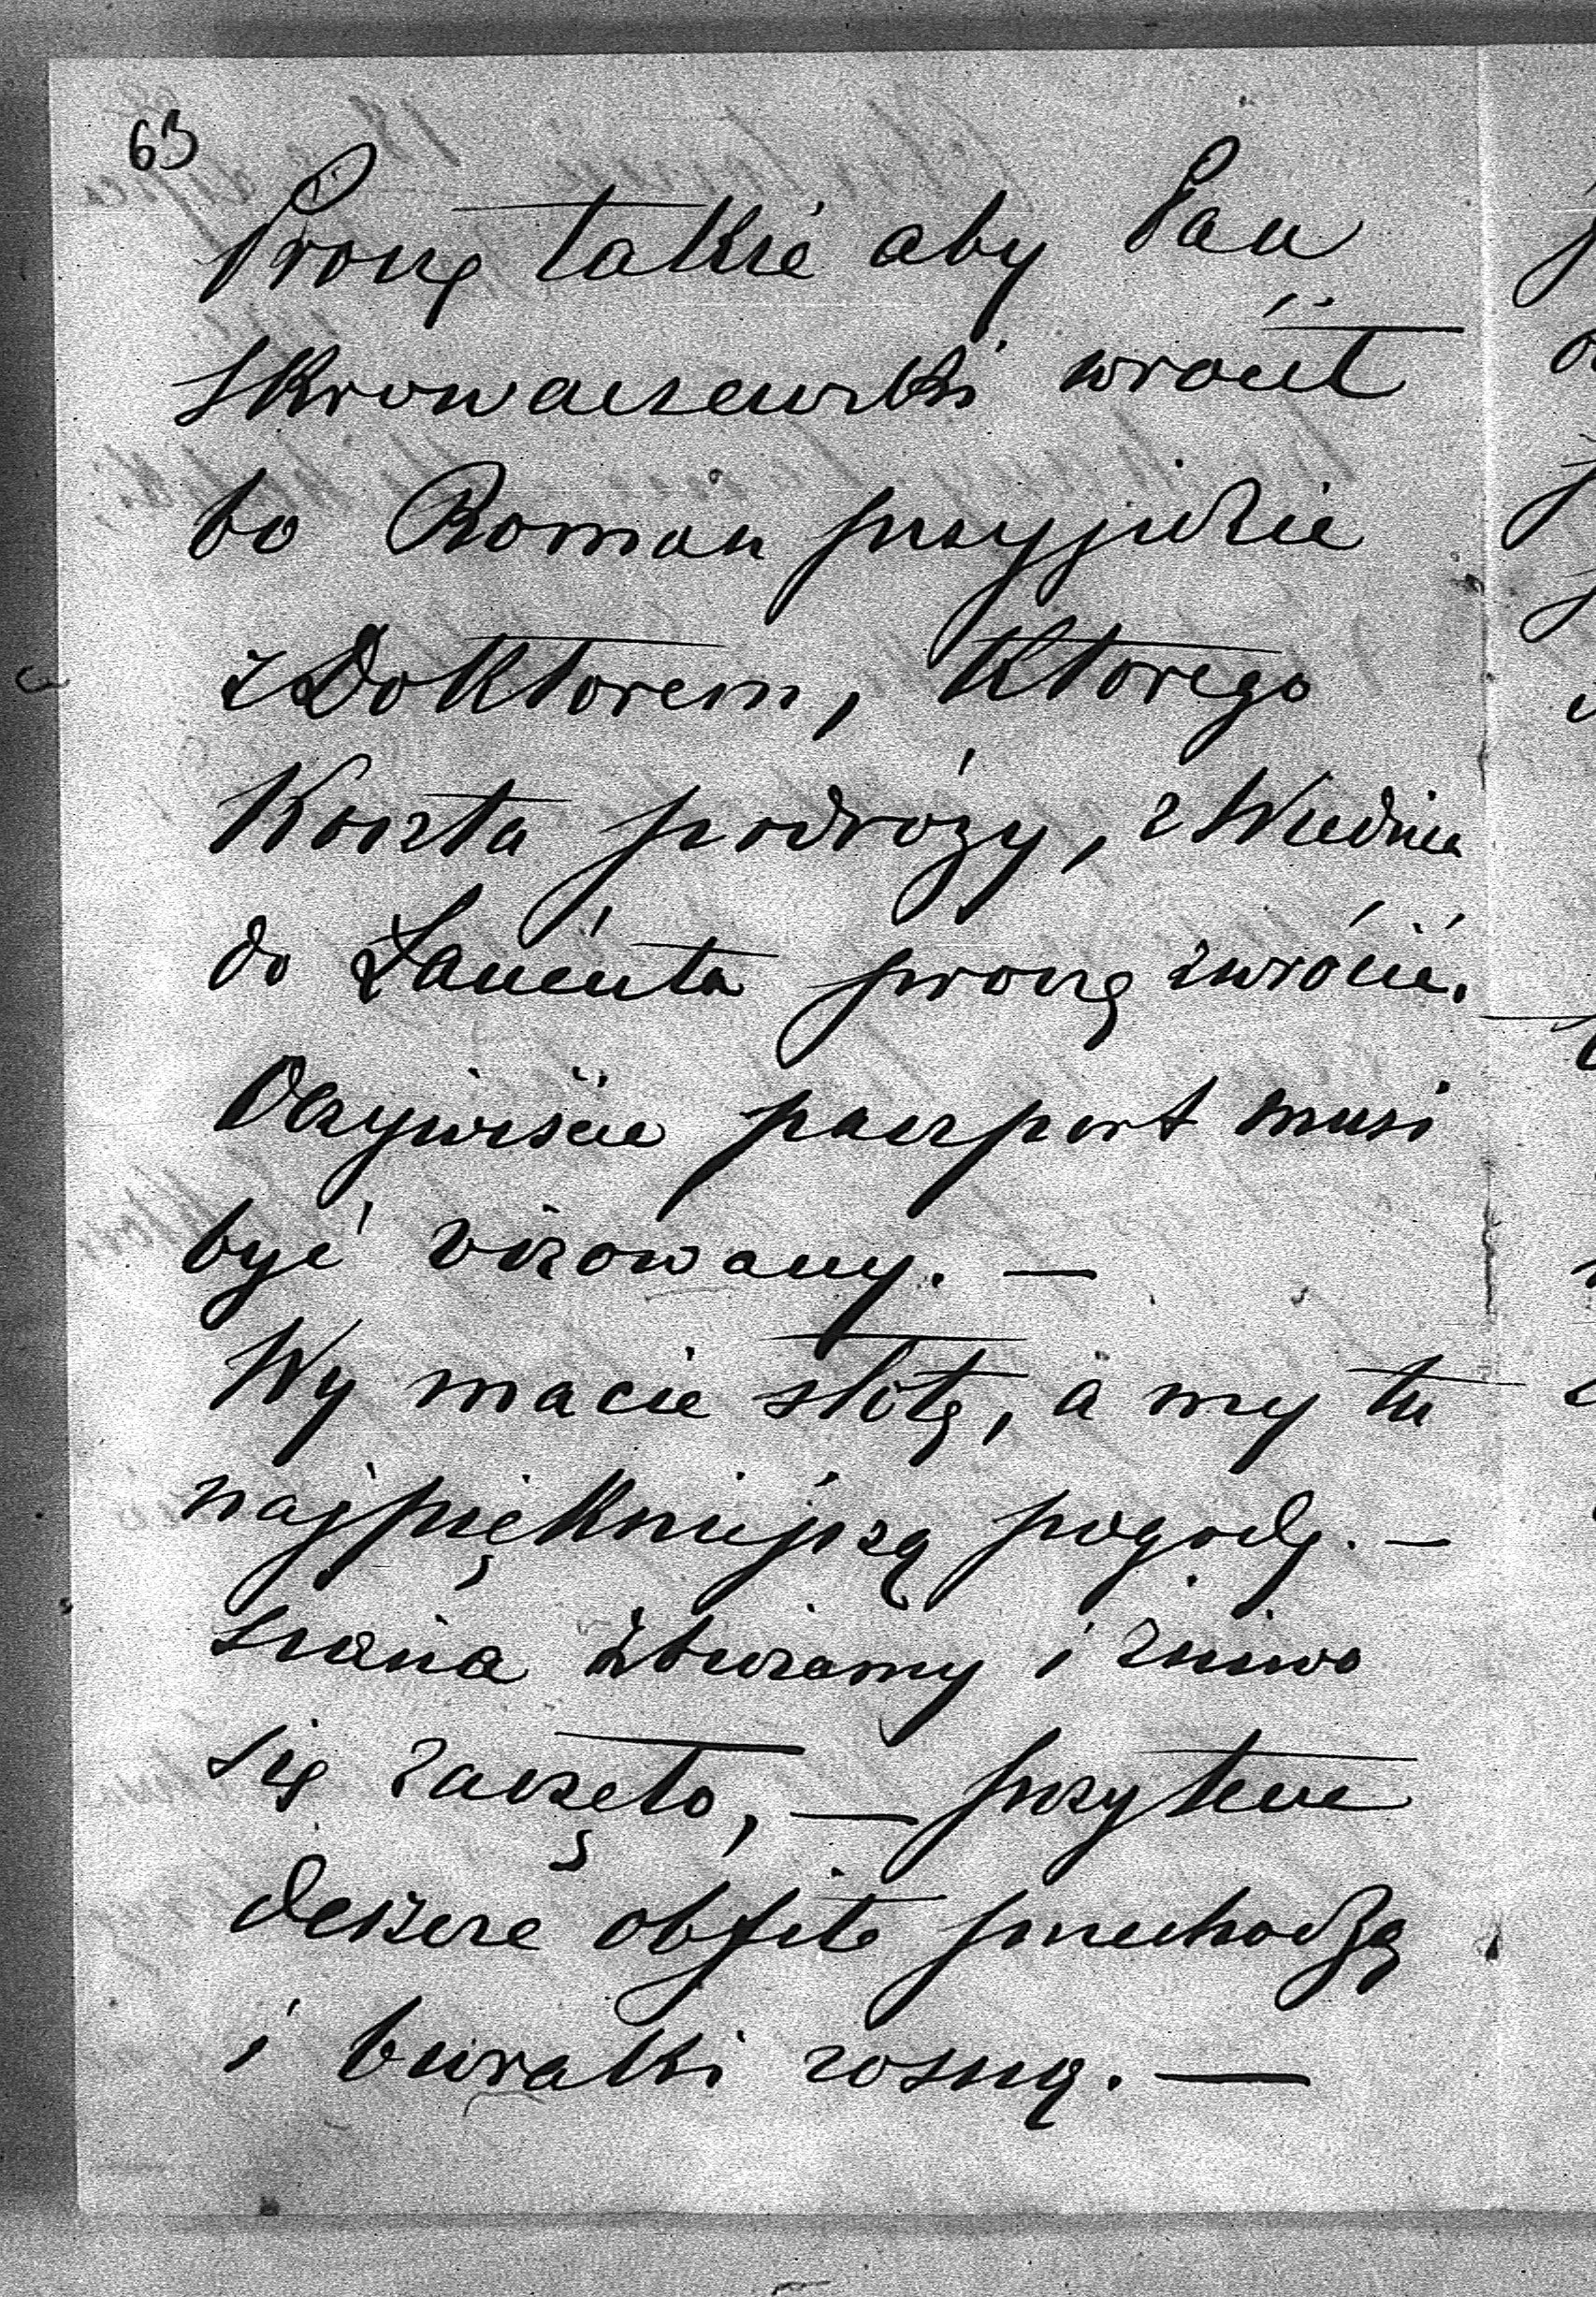 63
Proszę także aby Pan
Skrowaczewski wrócił
bo Roman przyjedzie
z Doktorem, Którego
Koszta podróży, z Wiednia
do Łańcuta proszę zwrócić.
Oczywiście paszport musi
być vizowany. —
Wy macie słotę, a my tu
najpiękniejszą pogodę. —
siana zbieramy i żniwo
się zaczęło, — przytem
deszcze obfite przechodzą
i buraki rosną. —